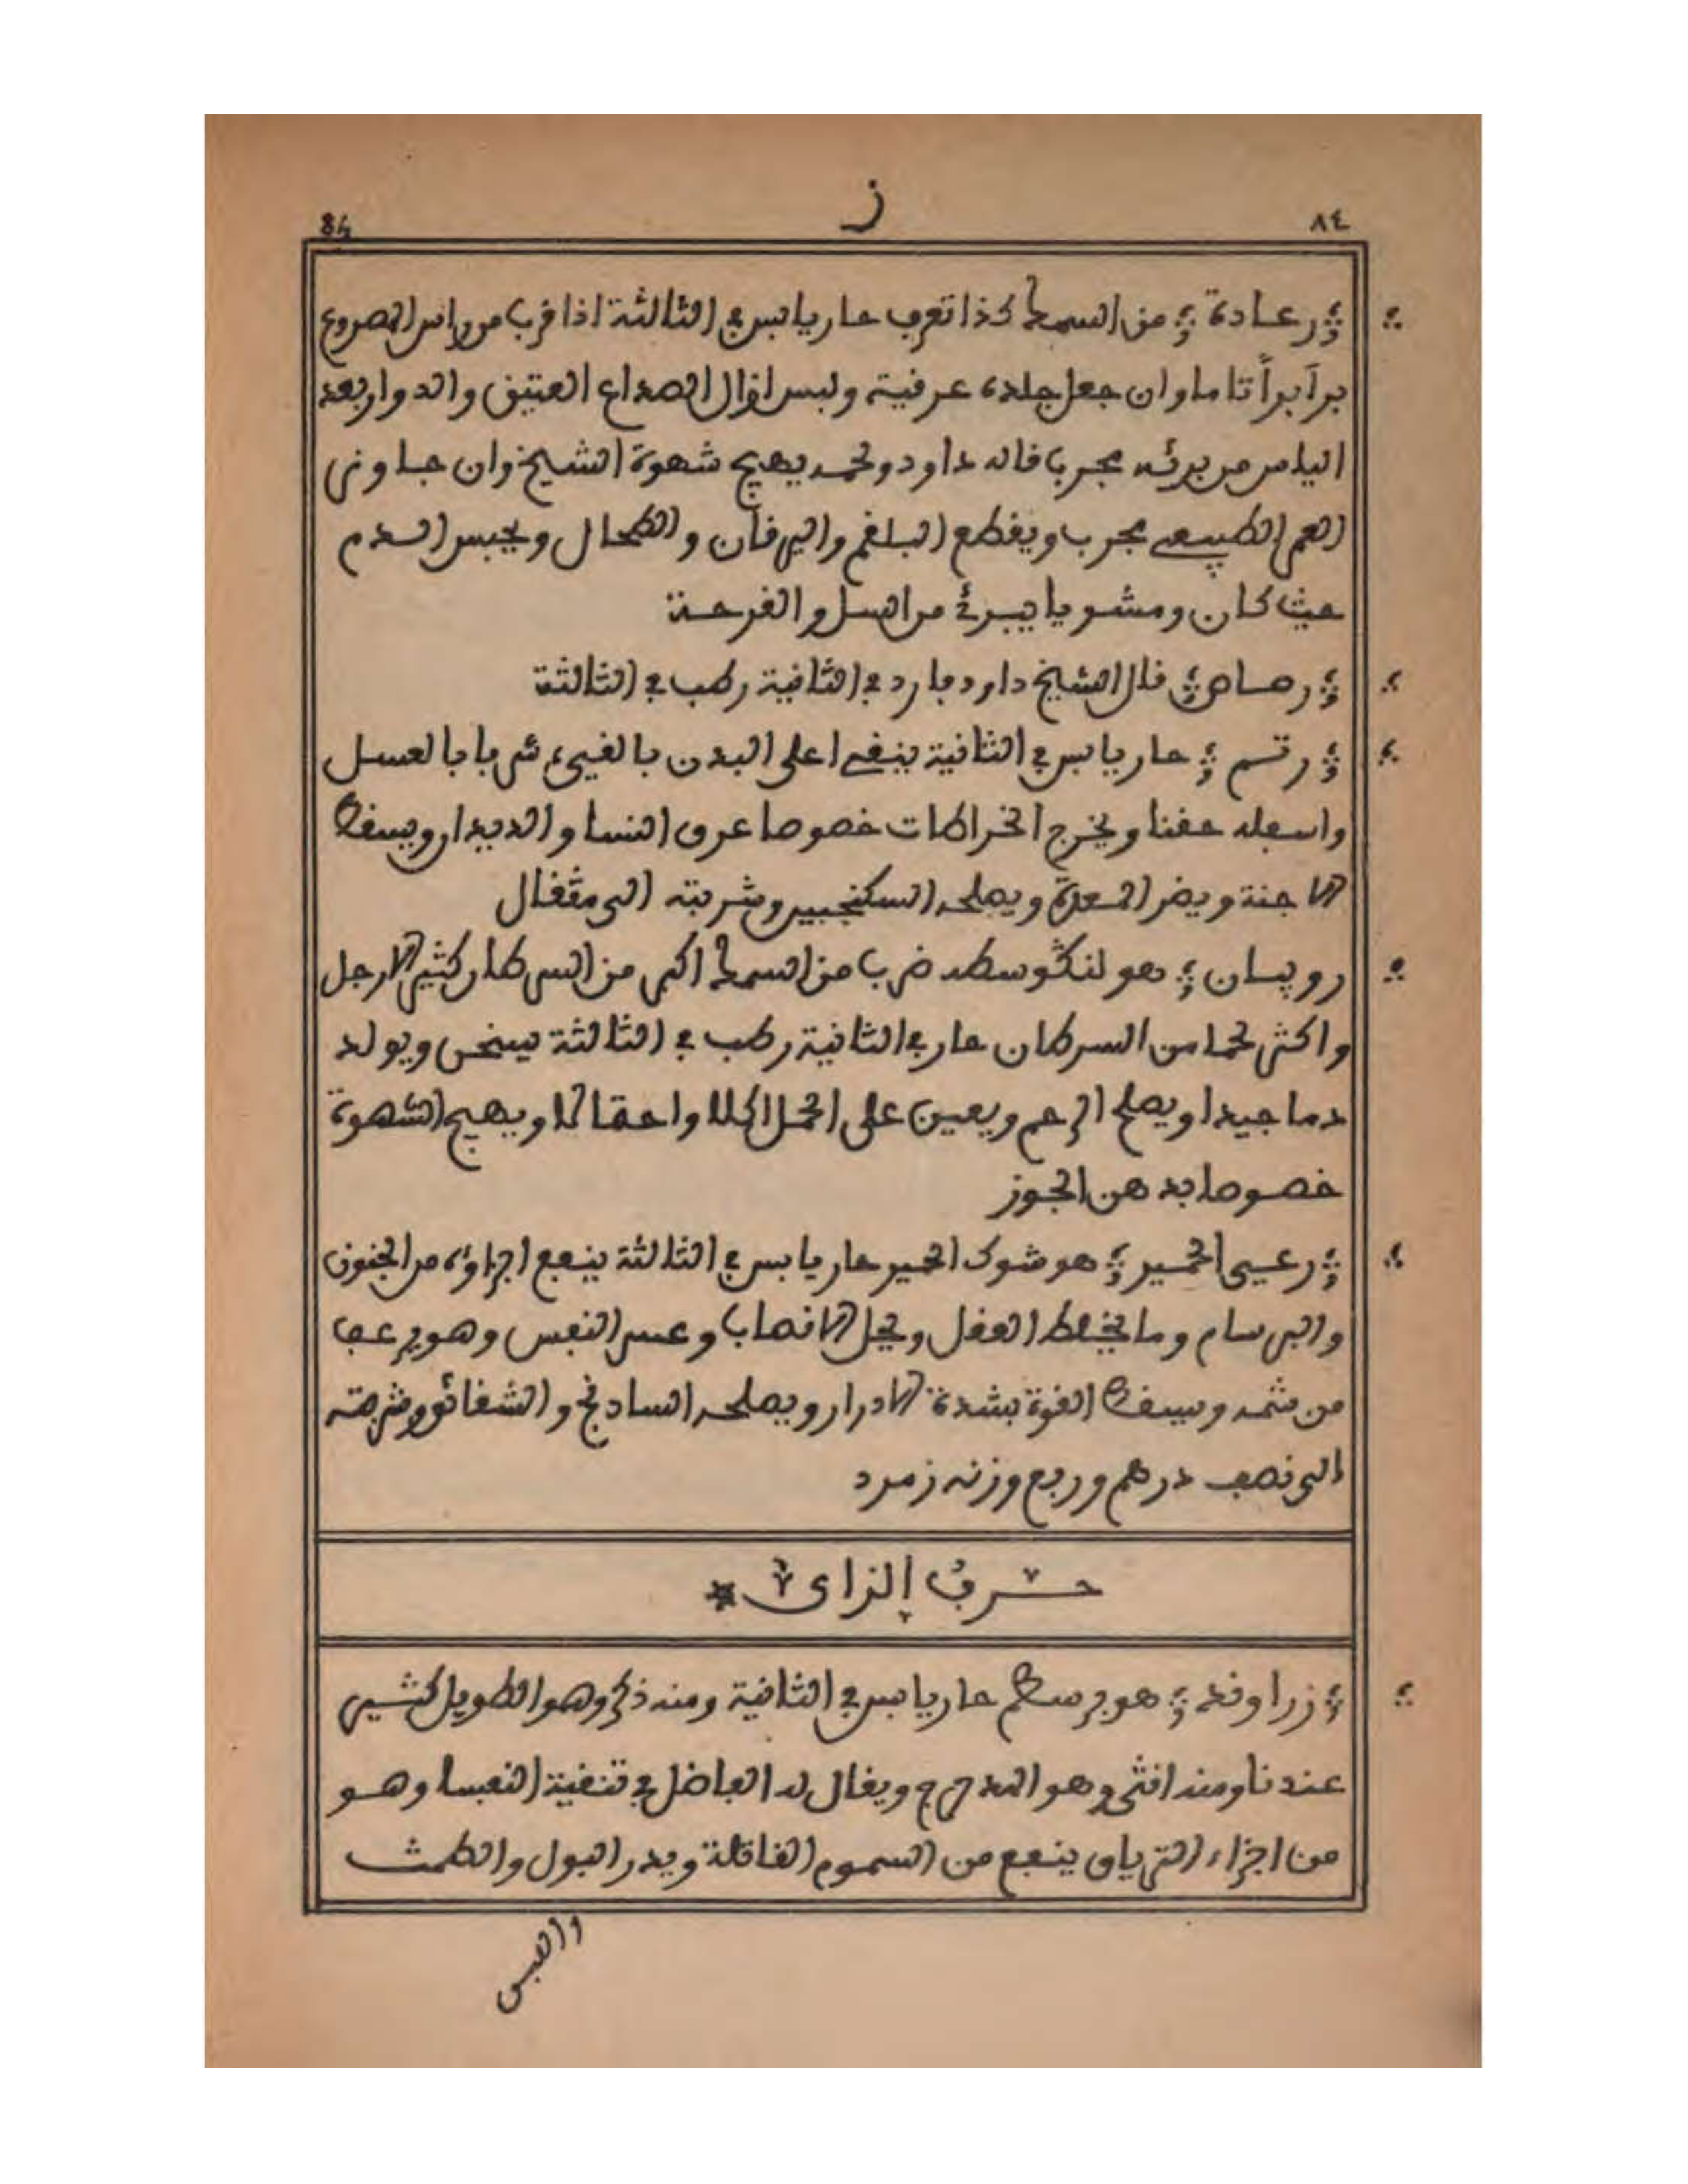 84 ز ٨٤
رعادة من السمك كذا تعرف حار يابس في الثالثة اذا قرب من راس المصروع
برأ برأ تاما وان جعل جلده عرقية ولبس ازال الصداع العتيق والدوار بعد
الياس من برئه مجربا قاله داود ولحمه يهيج شهوة الشيخ وان جاوز
العمر الطبيعي مجرب ويقطع البلغم واليرقان والطحال ويحبس الدم
حيث كان ومشويا يبرئ من السل والقرحة
رصاص قال الشيخ داود بارد في الثانية رطب في الثالثة
رتم حار يابس في الثانية ينقي اعلى البدن بالقيء شربا بالعسل
واسفله حقنا ويخرج الخراطات خصوصا عرق النسا والديدار ويسقط
الاجنة ويضر المعدة ويصلحه السكنجبين وشربته الى مثقال
روبيان هو لنكوسطه ضرب من السمك اكبر من السرطان كثير الارجل
واكثر لحما من السرطان حار في الثانية رطب في الثالثة يسخن ويولد
دما جيدا ويصلح الرحم ويعين على الحمل اكلا واحتمالا ويهيج الشهوة
خصوصا بدهن الجوز
رعي الحمير هو شوك الحمير حار يابس في الثالثة ينفع اجزاؤه من الجنون
والبرسام وما يخلط العقل ويحل الانصاب وعسر النفس وهو يرعف
من شمه ويسقط القوة بشدة الادرار ويصلحه السادنج والشقائق وشربته
الى نصف درهم وربع وزنه زمرد
حرف الزاي
زراوند هو برسطم حار يابس في الثانية ومنه ذكر وهو الطويل كثير
عندنا ومنه انثى وهو المدحرج ويقال له الفاضل في تنقية النفسا وهو
من اجزاء الترياق ينفع من السموم القاتلة ويدر البول والطمث